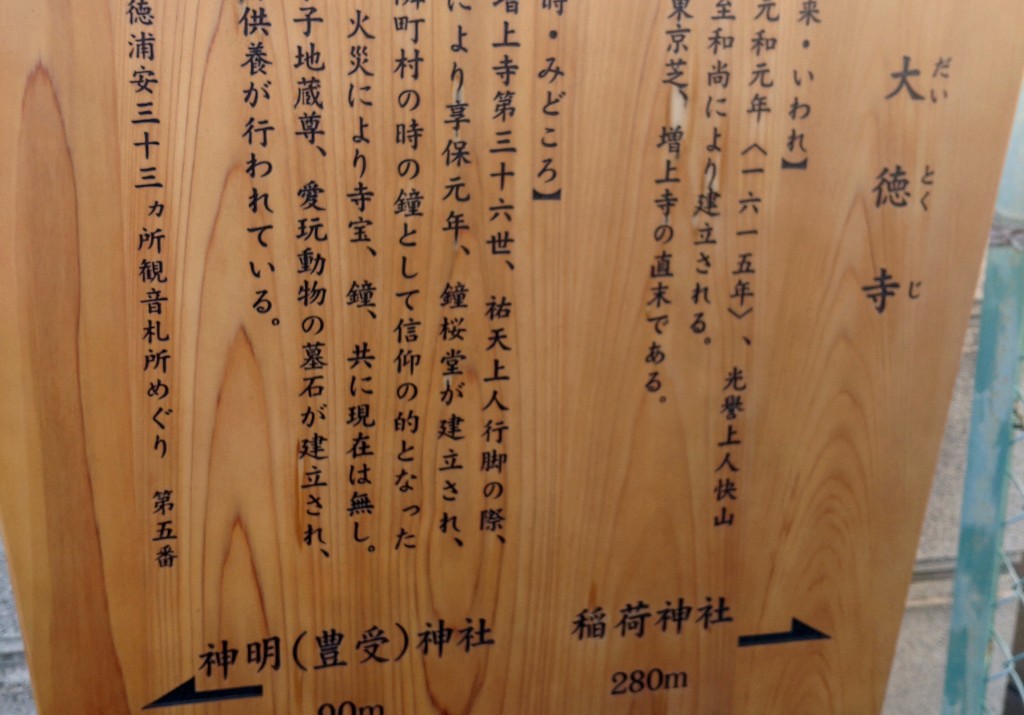 大徳寺
だいとくじ
来・いわれ】
元和元年〈一六一五年〉、光誉上人快山
至和尚により建立される。
東京芝、増上寺の直末である。
時・みどころ】
増上寺第三十六世、祐天上人行脚の際、
により享保元年、鐘楼堂が建立され、
隣町村の時の鐘として信仰の的となった
火災により寺宝、鐘、共に現在は無し。
子地蔵尊、愛玩動物の墓石が建立され、
供養が行われている。
徳浦安三十三ヵ所観音札所めぐり 第五番
稲荷神社
280m
神明(豊受)神社
90m